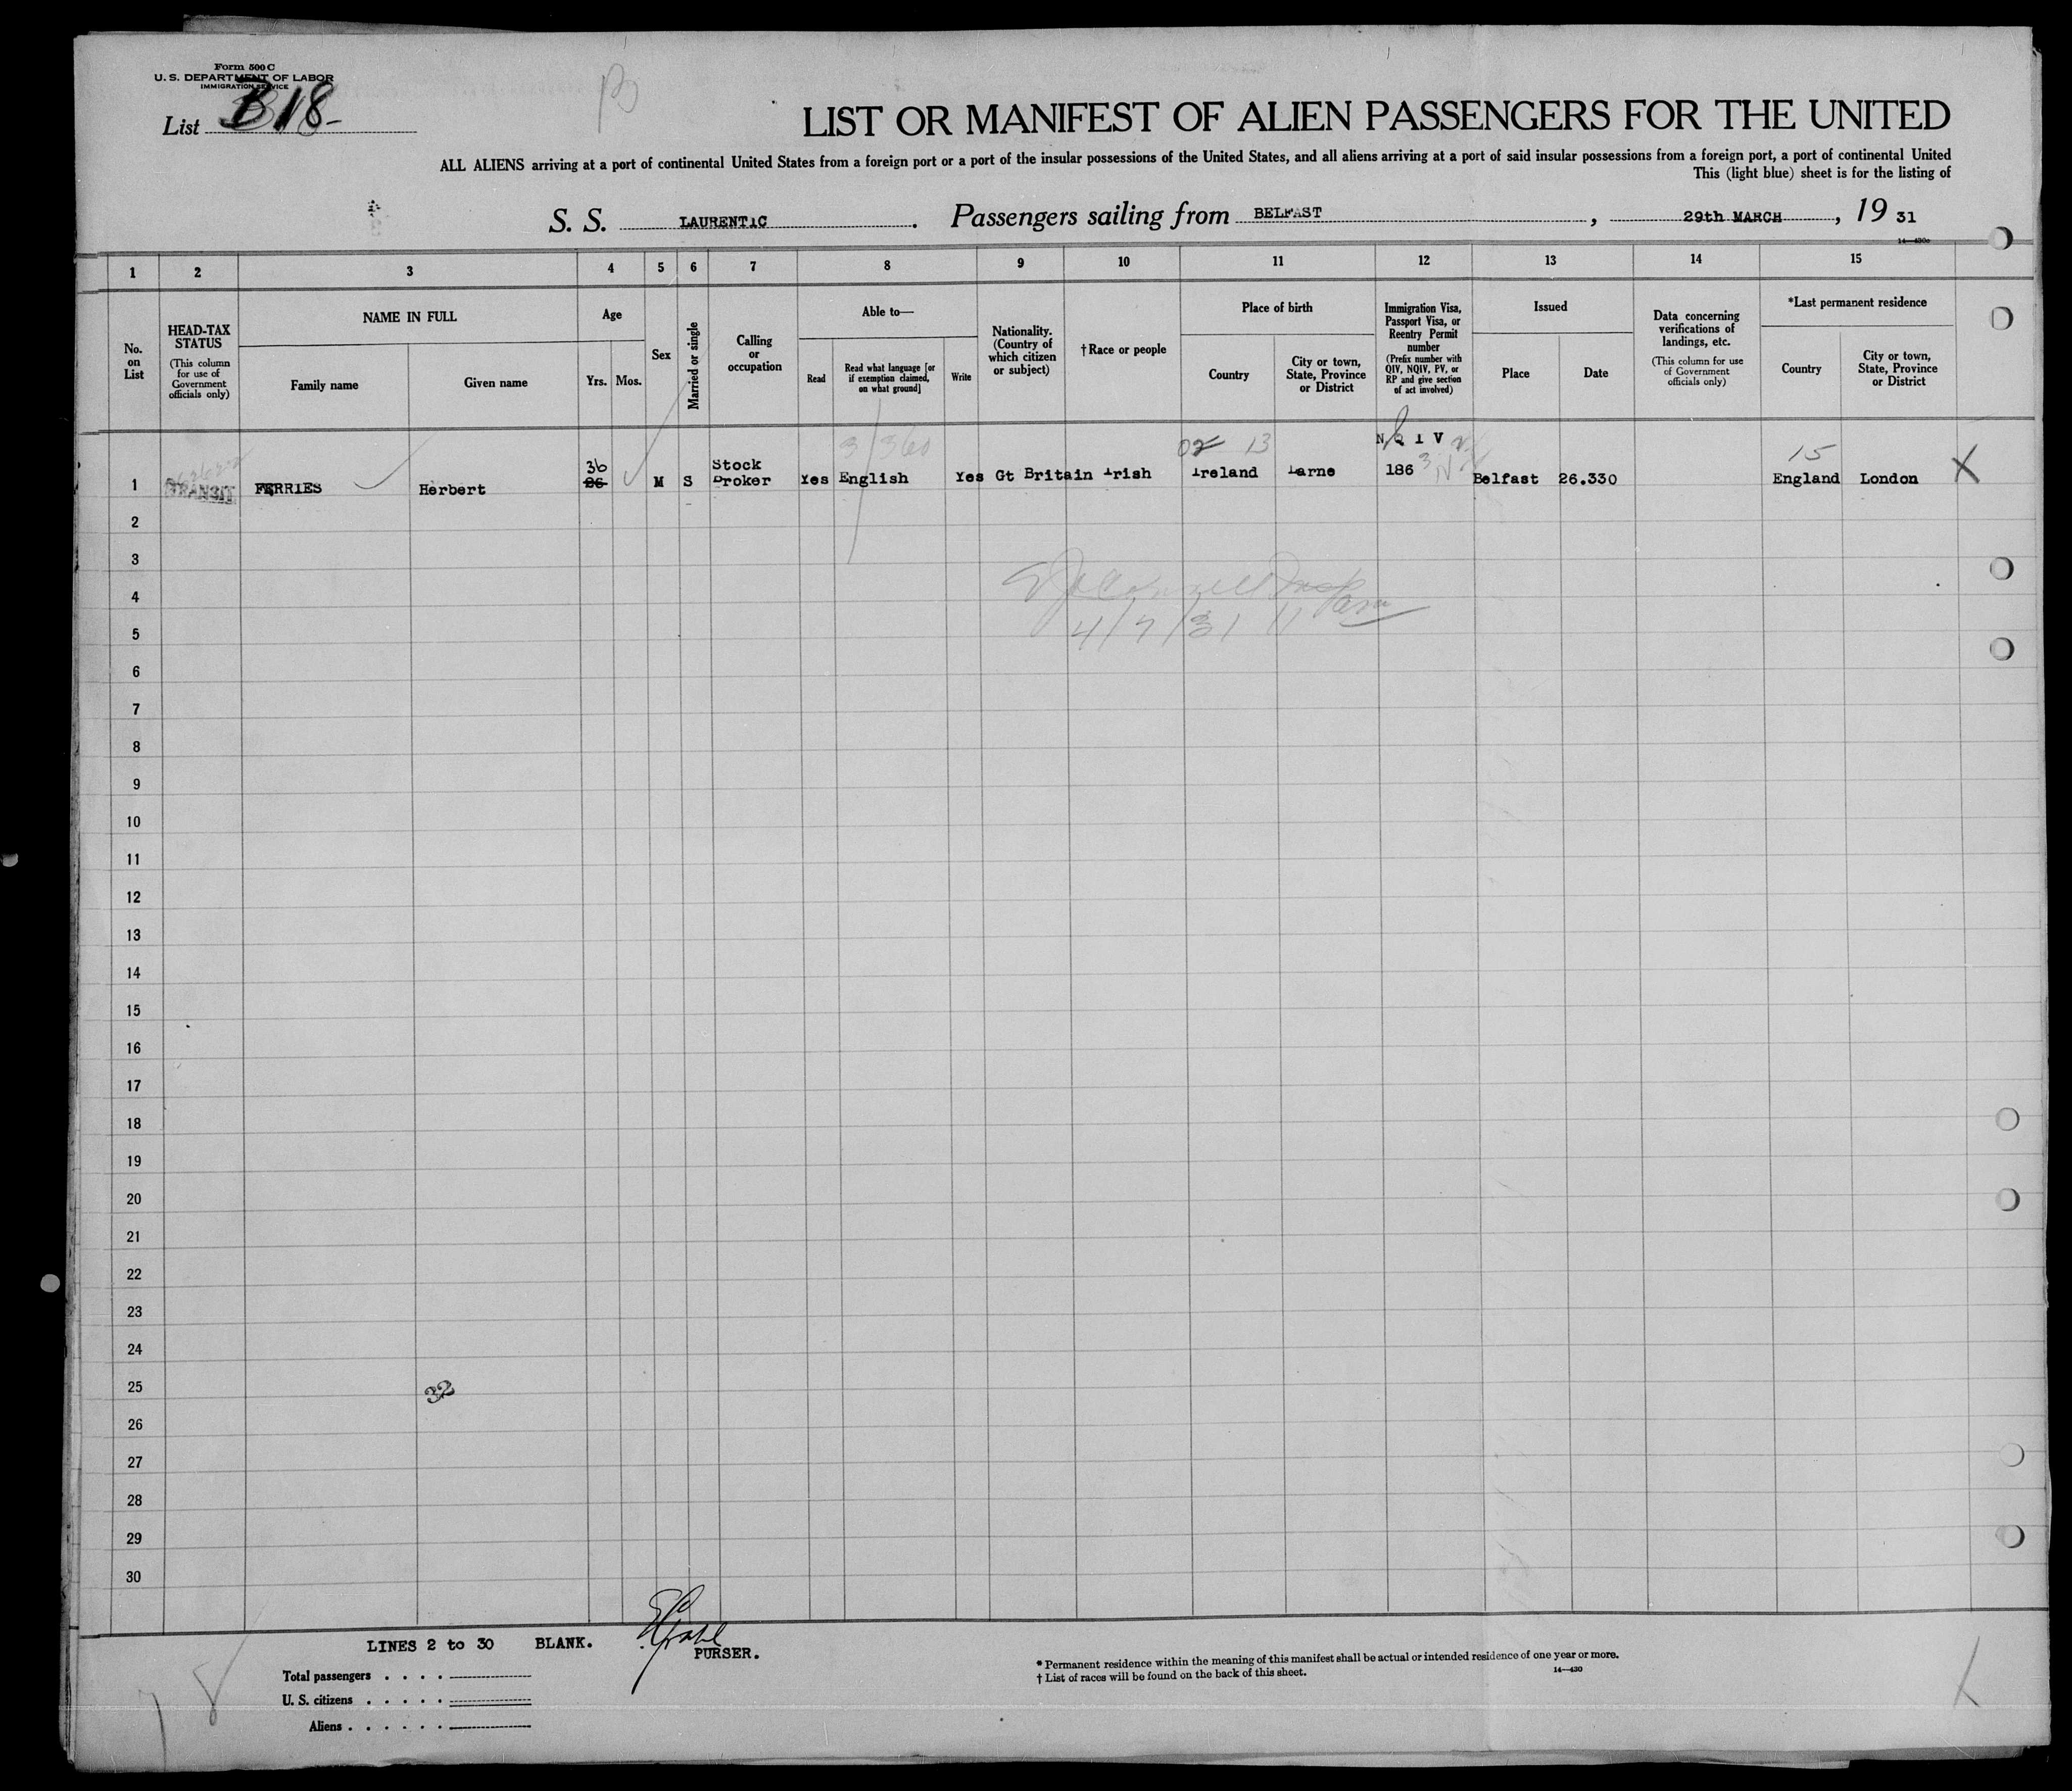 Form 500 C
U. S. DEPARTMENT OF LABOR
IMMIGRATION SERVICE
List B18-
LIST OR MANIFEST OF ALIEN PASSENGERS FOR THE UNITED
ALL ALIENS arriving at a port of continental United States from a foreign port or a port of the insular possessions of the United States, and all aliens arriving at a port of said insular possessions from a foreign port, a port of continental United
This (light blue) sheet is for the listing of
S. S. LAURENTIC. Passengers sailing from BELFAST, 29th MARCH, 19 31
14—430c
1 2 3 4 5 6 7 8 9 10 11 12 13 14 15
No. on List
HEAD-TAX STATUS
(This column for use of Government officials only)
NAME IN FULL
Family name
Given name
Age
Yrs. Mos.
Sex
Married or single
Calling or occupation
Able to—
Read
Read what language [or if exemption claimed, on what ground]
Write
Nationality. (Country of which citizen or subject)
†Race or people
Place of birth
Country
City or town, State, Province or District
Immigration Visa, Passport Visa, or Reentry Permit number
(Prefix number with QIV, NQIV, PV, or RP and give section of act involved)
Issued
Place
Date
Data concerning verifications of landings, etc.
(This column for use of Government officials only)
*Last permanent residence
Country
City or town, State, Province or District
3/360 02 13 N Q I V 15
1 TRANSIT FERRIES Herbert 36 26 M S Stock Broker Yes English Yes Gt Britain Irish Ireland Larne 186 3 Belfast 26.330 England London X
2
3
4
5
4/7/31
6
7
8
9
10
11
12
13
14
15
16
17
18
19
20
21
22
23
24
25 32
26
27
28
29
30
LINES 2 to 30 BLANK.
PURSER.
Total passengers . . . .
U. S. citizens . . . . .
Aliens . . . . . .
* Permanent residence within the meaning of this manifest shall be actual or intended residence of one year or more.
† List of races will be found on the back of this sheet.
14—430